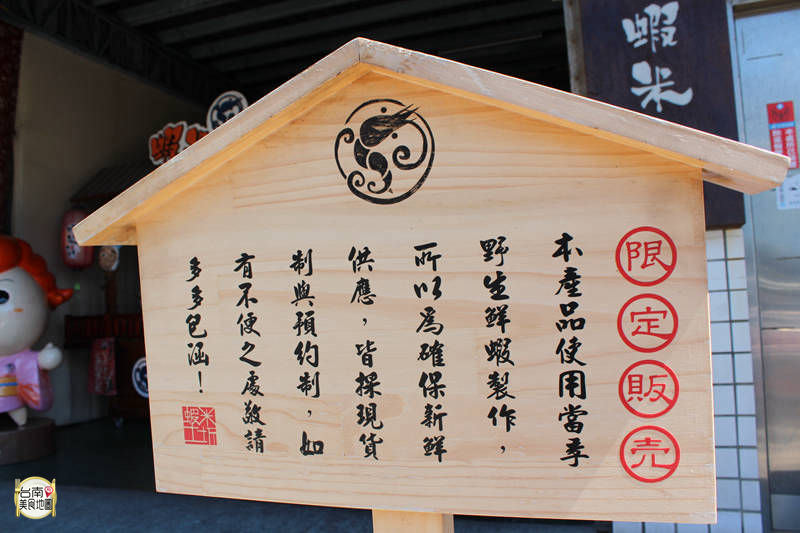 限定販売
本產品使用當季
野生鮮蝦製作，
所以為確保新鮮
供應，皆採現貨
制與預約制，如
有不便之處敬請
多多包涵！
蝦米
台南
美食地圖